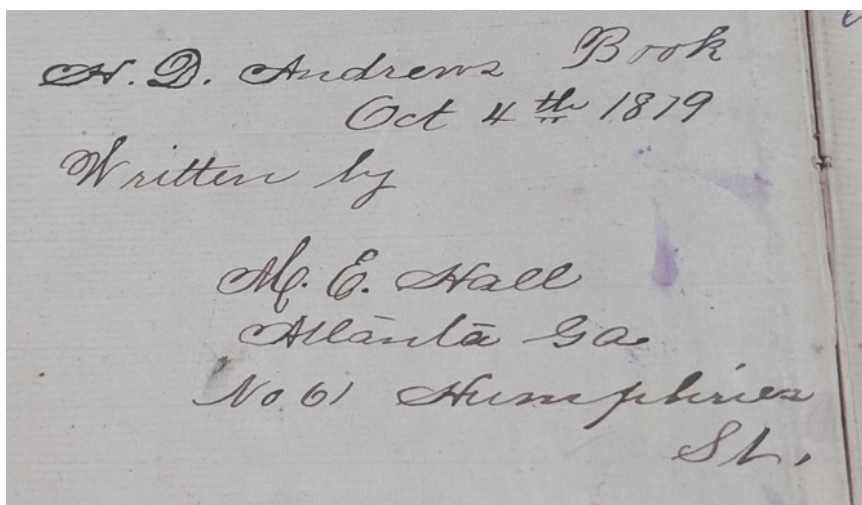 H. D. Andrews Book
Oct 4th 1879
Written by
M. E. Hall
Atlanta Ga
No 61 Humphries
St.